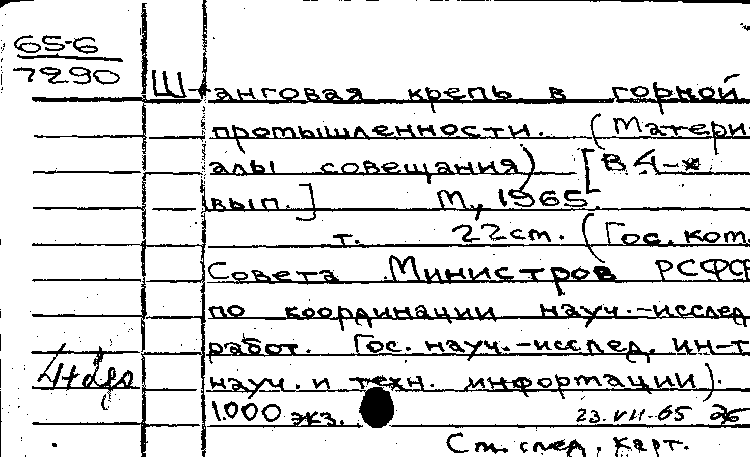 65-6
7290
Штанговая крепь в горной
промышленности. (Матери-
алы совещания) [В 4-х
вып.] М., 1965.
т. 22 см. (Гос. ком.
Совета Министров РСФСР
по координации науч.-исслед.
работ. Гос. науч.-исслед. ин-т
науч. и техн. информации).
1.000 экз. 23.VII.65
См. след. карт.